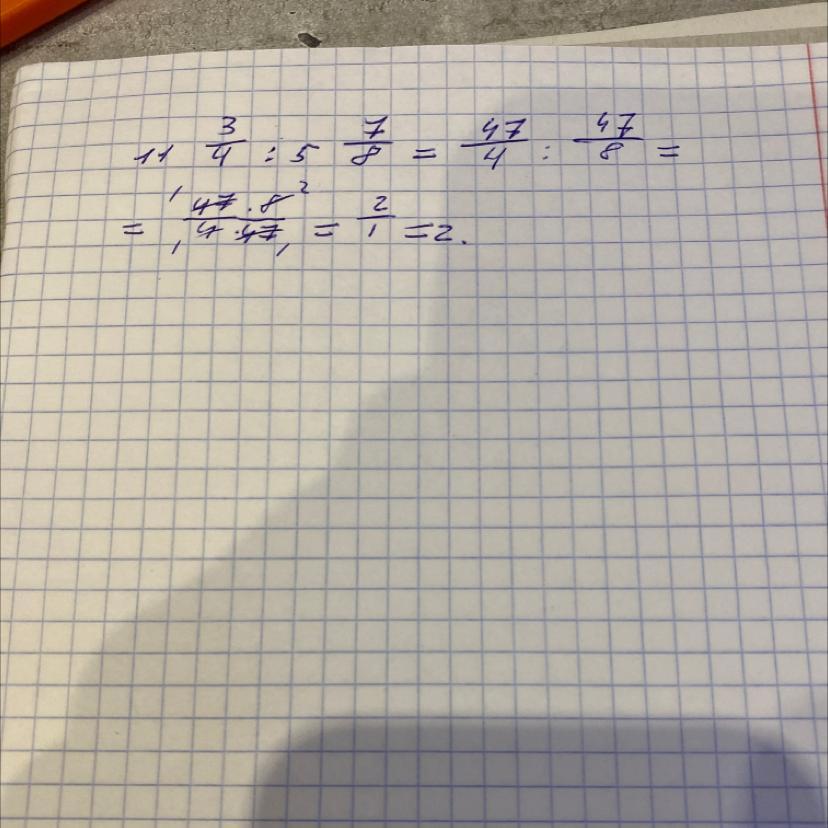 11 3/4 : 5 7/8 = 47/4 : 47/8 =
= 47 · 8 / 4 · 47 = 2/1 = 2.